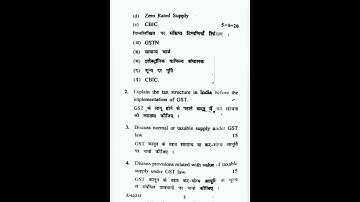 (d) Zero Rated Supply
(e) CBIC. 5×4=20
निम्नलिखित पर संक्षिप्त टिप्पणियाँ लिखिए :
(अ) GSTN
(ब) सामान्य मार्ग
(स) इलेक्ट्रॉनिक वाणिज्य संचालक
(द) शून्य दर पूर्ति
(इ) CBIC.
2. Explain the tax structure in India before the
implementation of GST. 15
GST के लागू होने से पहले भारत में कर संरचना
की व्याख्या कीजिए ।
3. Discuss normal or taxable supply under GST
law. 15
GST कानून के तहत सामान्य या कर-योग्य आपूर्ति
पर चर्चा कीजिए ।
4. Discuss provisions related with value of taxable
supply under GST law. 15
GST कानून के तहत कर-योग्य आपूर्ति के मूल्य
से संबंधित प्रावधानों पर चर्चा कीजिए ।
2